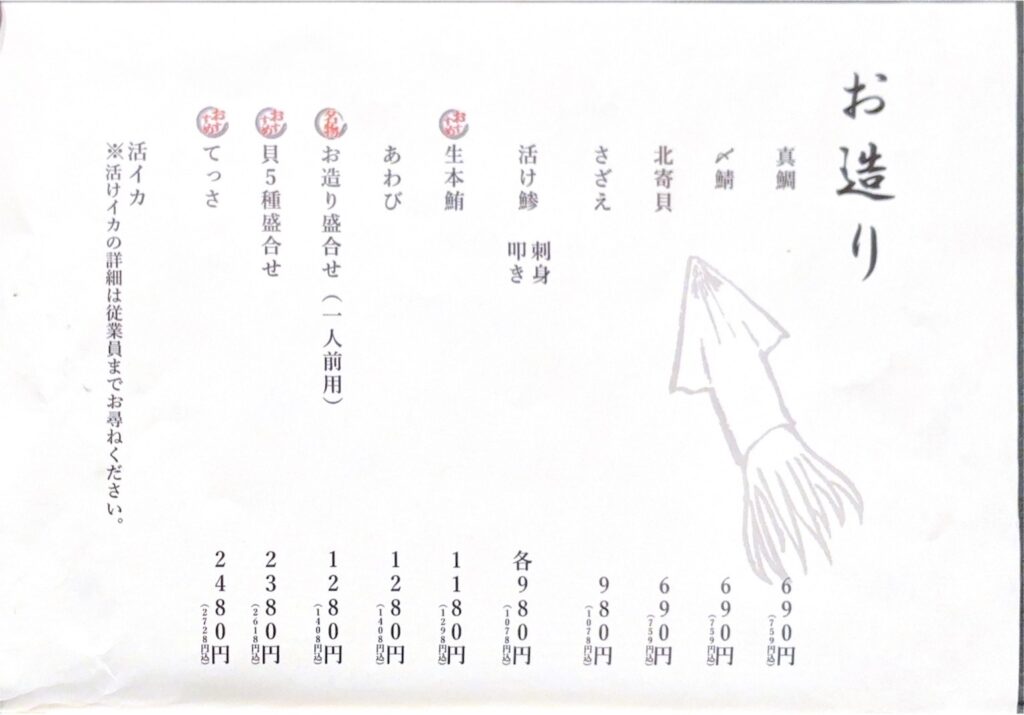 お造り
真鯛
690円
(759円込)
〆鯖
690円
(759円込)
北寄貝
690円
(759円込)
さざえ
980円
(1078円込)
活け鯵
刺身
叩き
各980円
(1078円込)
おすすめ
生本鮪
1180円
(1298円込)
あわび
1280円
(1408円込)
名物
お造り盛合せ(一人前用)
1280円
(1408円込)
おすすめ
貝5種盛合せ
2380円
(2618円込)
おすすめ
てっさ
2480円
(2728円込)
活イカ
※活けイカの詳細は従業員までお尋ねください。